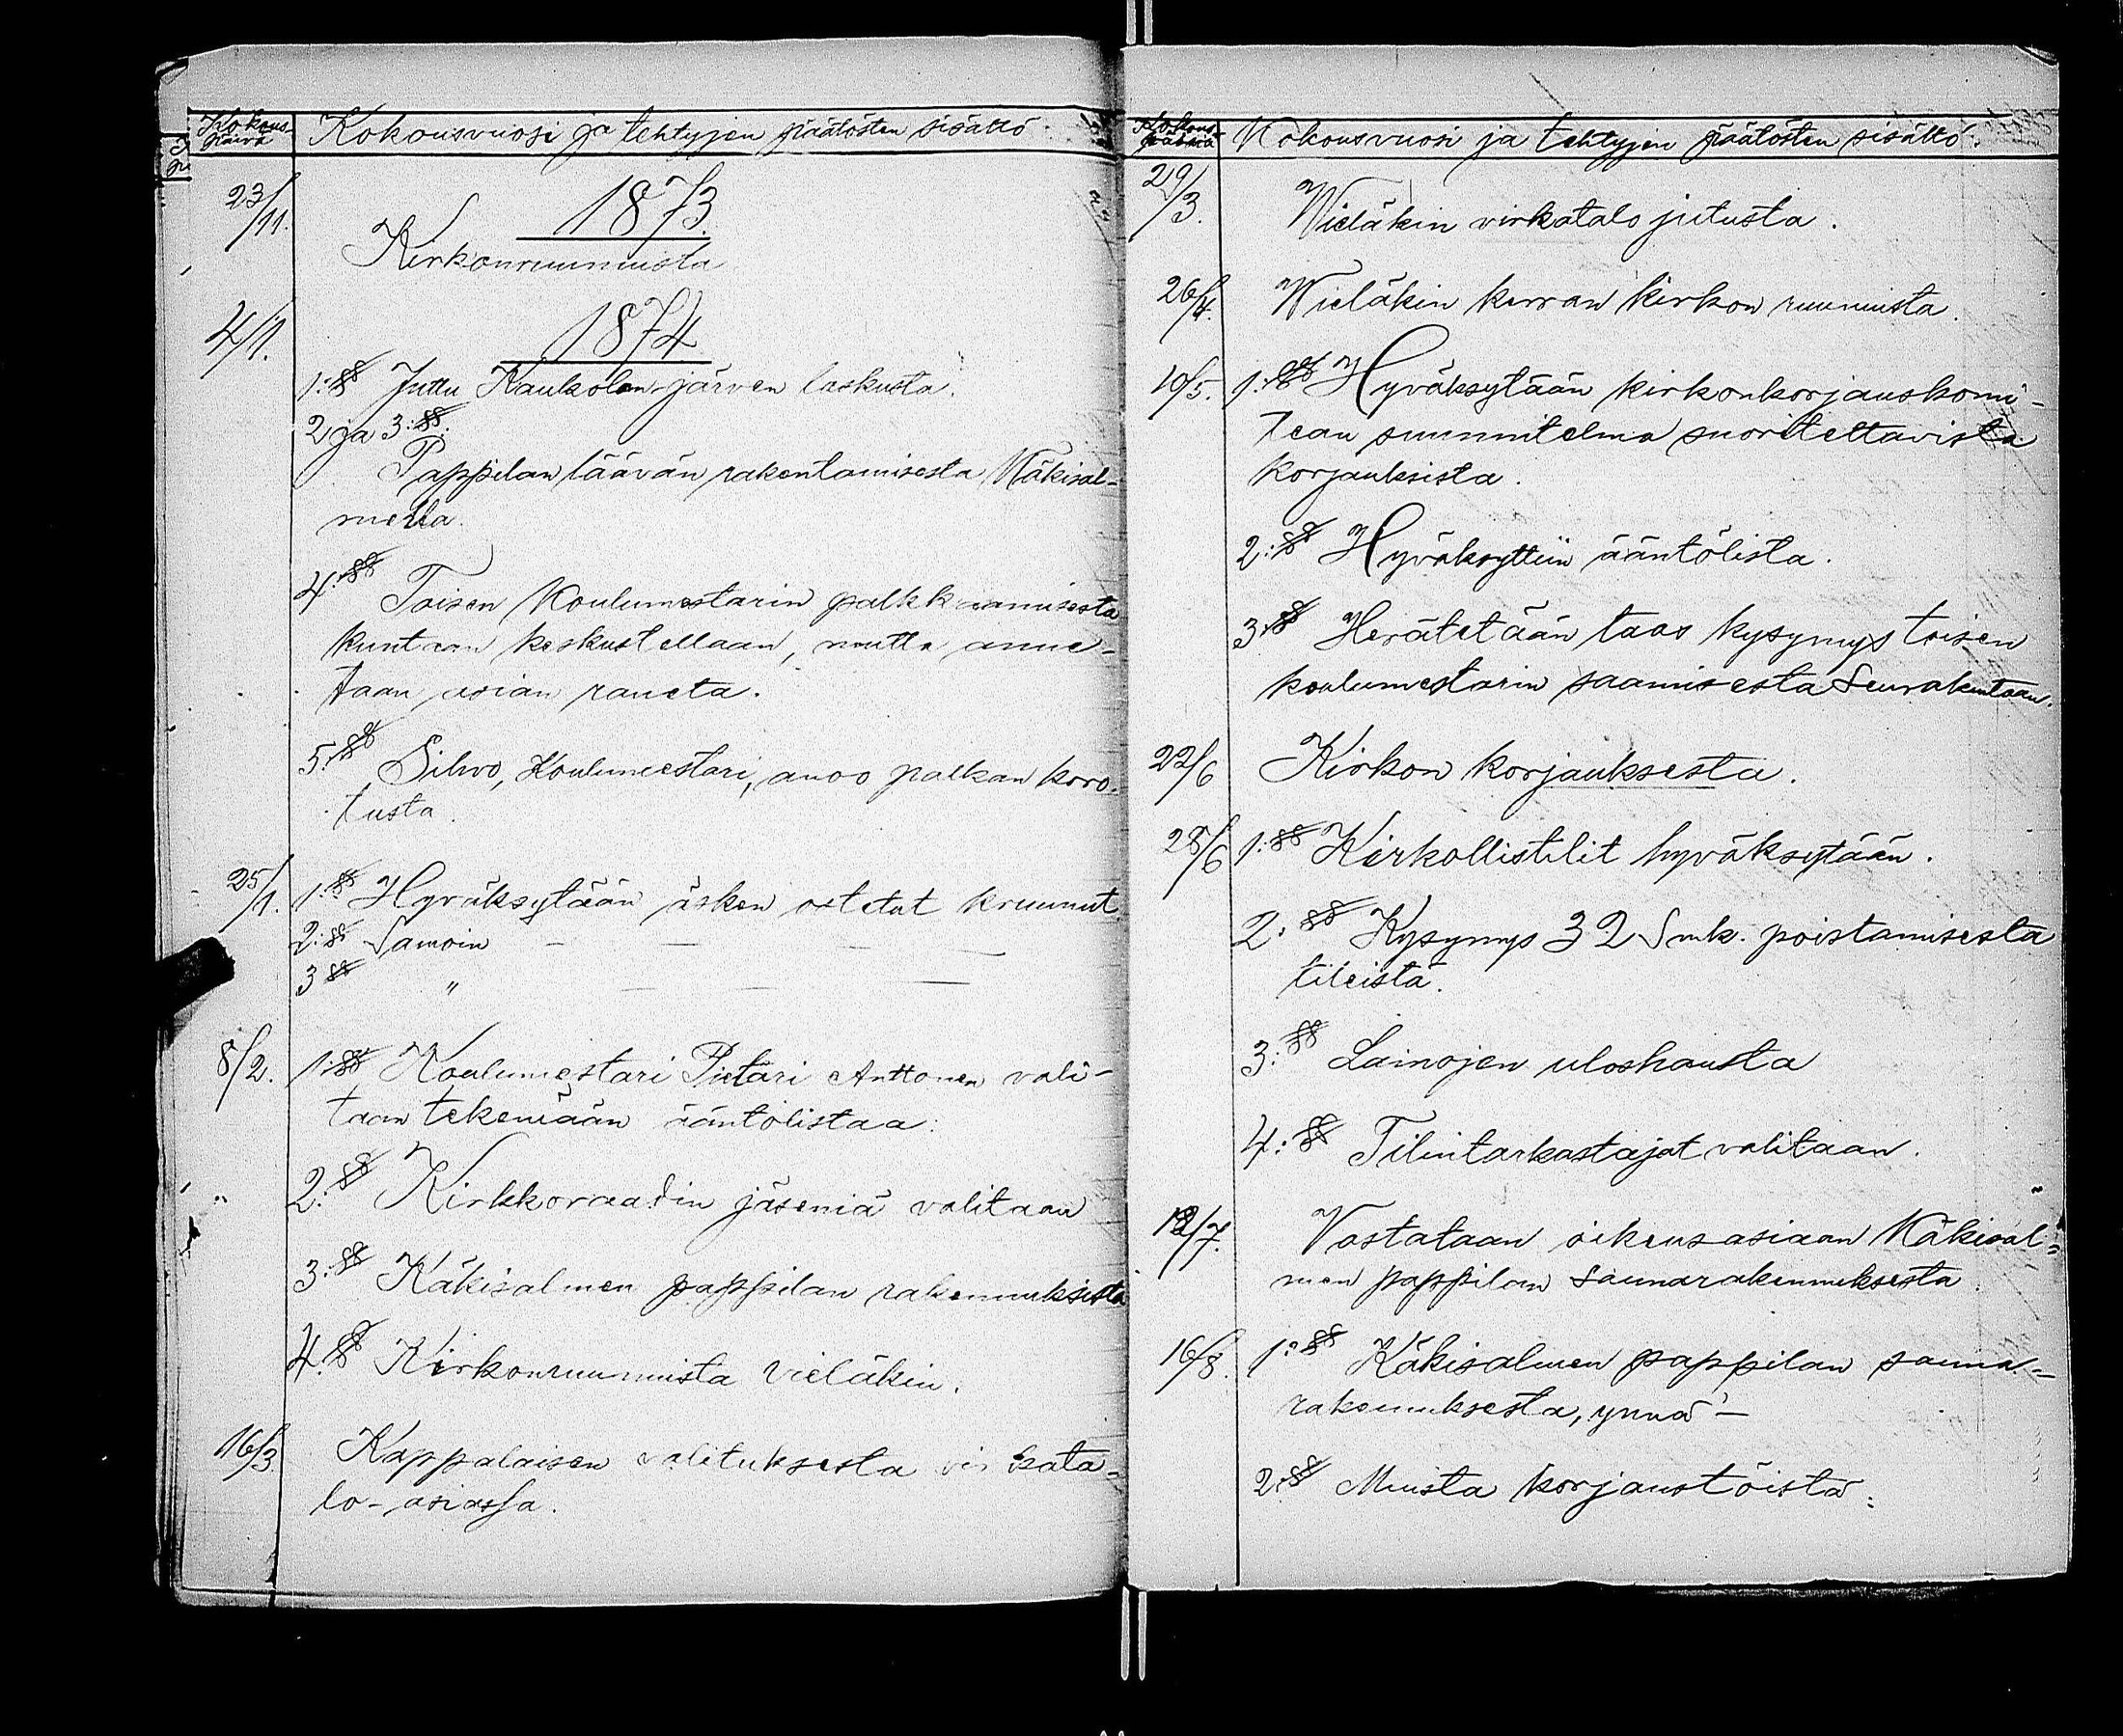 Kokous- Kokousvuosi ja tehtyjen päätösten sisältö.
päivä
23/11. 1873.
Kirkonruunusta
4/1. 1874.
1:§§ Juttu Kaukolanjärven laskusta.
2 ja 3:§§.
Pappilan läävän rakentamisesta Käkisal-
mella.
4:§§ Toisen Koulumestarin palkkaamisesta
kuntaan keskustellaan, mutta anne-
taan asian raueta.
5:§§ Silwo, Koulumestari, anoo palkan koro-
tusta.
25/1. 1:§§ Hyväksytään äsken ostetut kruunut.
2:§§ Samoin — — — —
3 §§ " — — —
8/2. 1:§§ Koulumestari Pietari Anttonen vali-
taan tekemään ääntölistaa.
2:§§ Kirkkoraadin jäseniä valitaan
3:§§ Käkisalmen pappilan rakennuksista
4:§§ Kirkonruunuista vieläkin.
16/3. Kappalaisen valituksesta virkata-
lo-asiassa.
Kokous- Kokousvuosi ja tehtyjen päätösten sisältö.
päivä
29/3. Wieläkin virkatalo jutusta.
26/4. Wieläkin kerran kirkon ruunuista.
10/5. 1:§§ Hyväksytään kirkonkorjauskomi-
tean suunnitelma suoritettavista
korjauksista.
2:§§ Hyväksyttiin ääntölista.
3:§§ Herätetään taas kysymys toisen
koulumestarin saamisesta Seurakuntaan.
22/6 Kirkon korjauksesta.
28/6 1:§§ Kirkollistilit hyväksytään.
2:§§ Kysymys 32 Smk. poistamisesta
tileistä.
3:§§ Lainojen uloshausta
4:§§ Tilintarkastajat valitaan.
12/7. Vastataan oikeusasiaan Käkisal-
men pappilan saunarakennuksesta.
16/8. 1:§§ Käkisalmen pappilan sauna-
rakennuksesta, ynnä —
2:§§ Muista korjaustöistä.